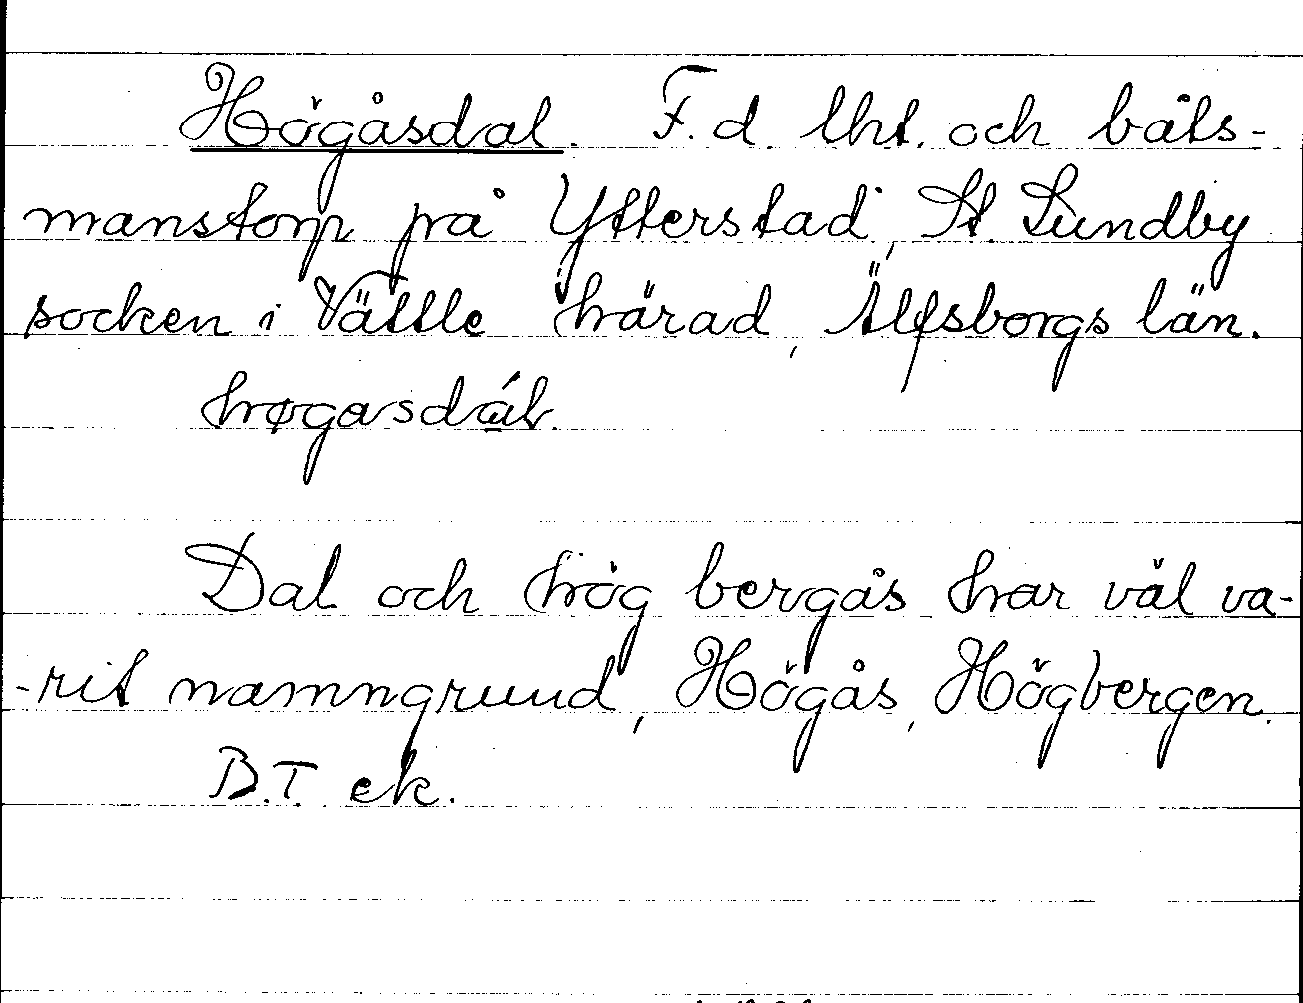 Högåsdal. F.d. lht. och båts-
manstorp på Ytterstad, St. Lundby
socken i Vättle härad, Älfsborgs län.
høgasdál.
Dal och hög bergås har väl va-
-rit namngrund, Högås, Högbergen.
B.T. ek.